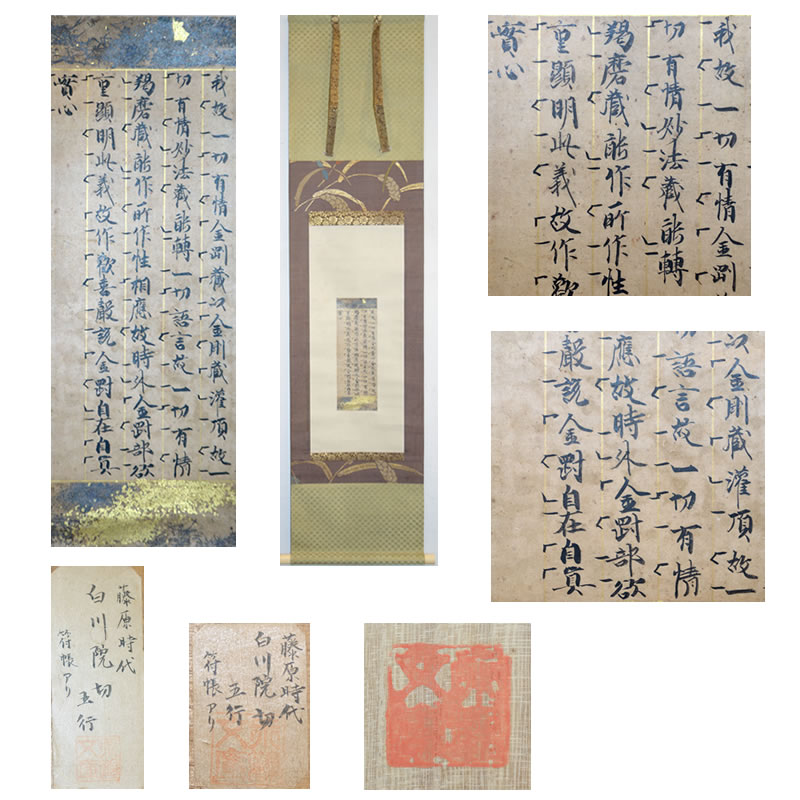 我故一切有情金剛藏以金剛藏灌頂故一
切有情妙法藏能轉一切語言故一切有情
羯磨藏能作所作性相應故時外金剛部欲
重顯明此義故作歡喜聲說金剛自在自真
實心
我故一切有情金剛
切有情妙法藏能轉
羯磨藏能作所作性
重顯明此義故作歡
實心
以金剛藏灌頂故一
切語言故一切有情
應故時外金剛部欲
聲說金剛自在自真
藤原時代
白川院切 五行
符帳アリ
藤原時代
白川院切
五行
符帳アリ